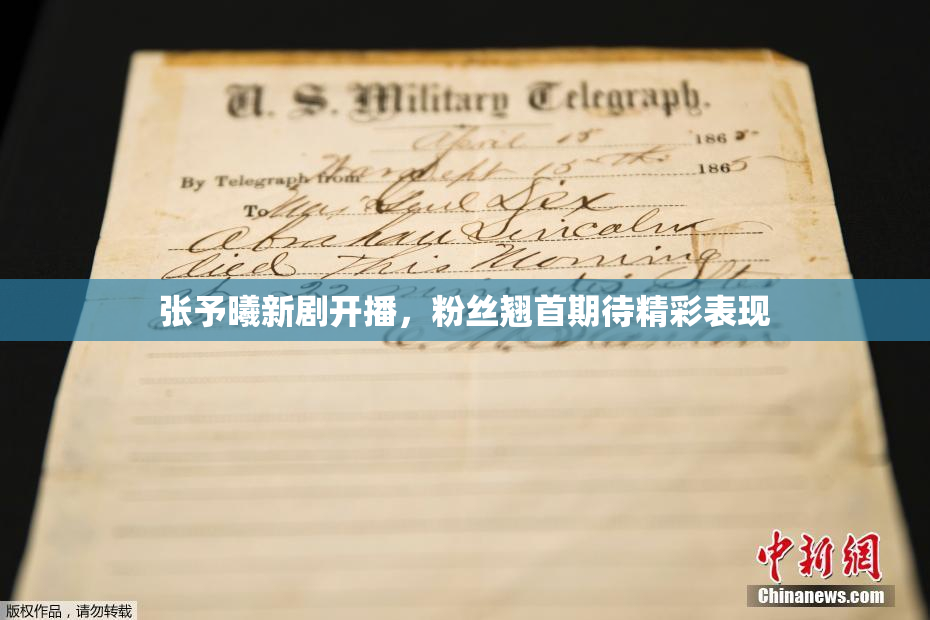 U. S. Military Telegraph.
April 15 1865
By Telegraph from War Dept 15th 1865
To Maj Genl Dix
Abraham Lincoln
died This Morning
at 22 minutes after
张予曦新剧开播，粉丝翘首期待精彩表现
E. M. Stanton
中新网
Chinanews.com
版权作品，请勿转载